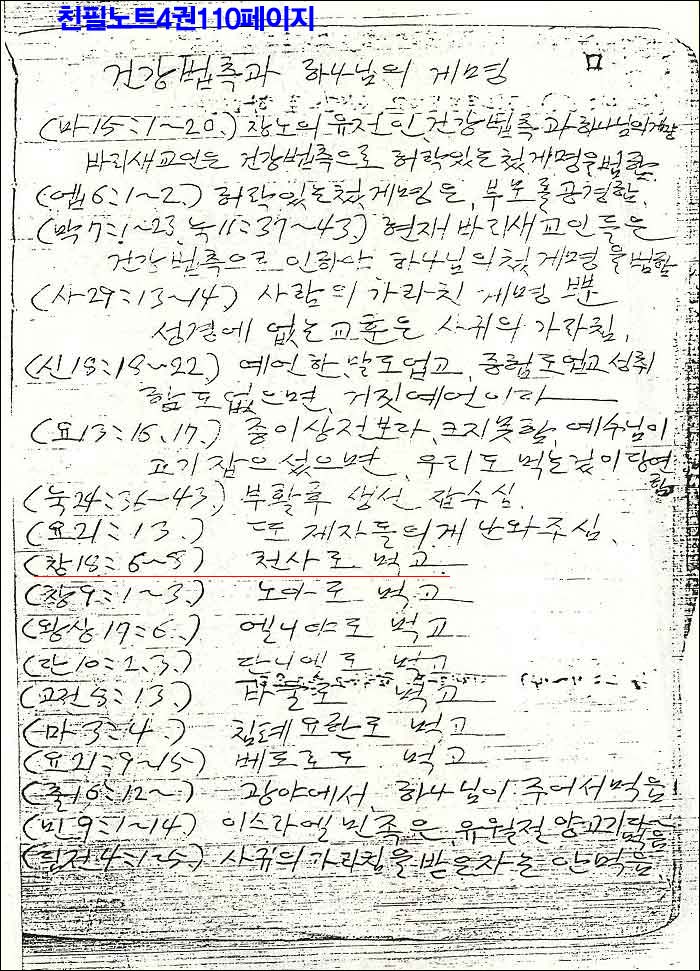 친필노트4권110페이지
건강법측과 하나님의 게명
(마15:1~20.) 장노의 유전인, 건강법측과 하나님의 게명
바리새교인은 건강법측으로 허락있는 첫게명을 범함.
(엡6:1~2.) 허락있는 첫게명은, 부모를 공경함.
(막7:1~23, 눅11:37~43.) 현재 바리새교인들은
건강법측으로 인하야, 하나님의 첫게명을 범함
(사29:13~14.) 사람의 가라친 게명 뿐
성경에 없는 교훈은 사귀의 가라침.
(신18:18~22.) 예언한 말도 업고, 증험도 업고 성취
함도 없으면, 거짓예언이라
(요13:16, 17.) 종이 상전보라, 크지 못함, 예수님이
고기 잡으섰으면, 우리도 먹는 것이 당연함
(눅24:36~43.) 부활후 생선 잡수심.
(요21:13.) 또 제자들의게 난와주심.
(창18:6~8) 천사로 먹고
(창9:1~3.) 노아로 먹고
(왕상17:6.) 엘니야도 먹고
(단10:2, 3.) 다니엘로 먹고
(고전8:13.) 바울로 먹고
(마3:4.) 침례요한로 먹고
(요21:9~15) 베드로도 먹고
(출16:12~) 광야에서, 하나님이 주어서 먹음
(민9:1~14) 이스라엘 민족은, 유월절 양고기 먹음
(딤전4:1~5.) 사귀의 가라침을 받은자는 안먹음.